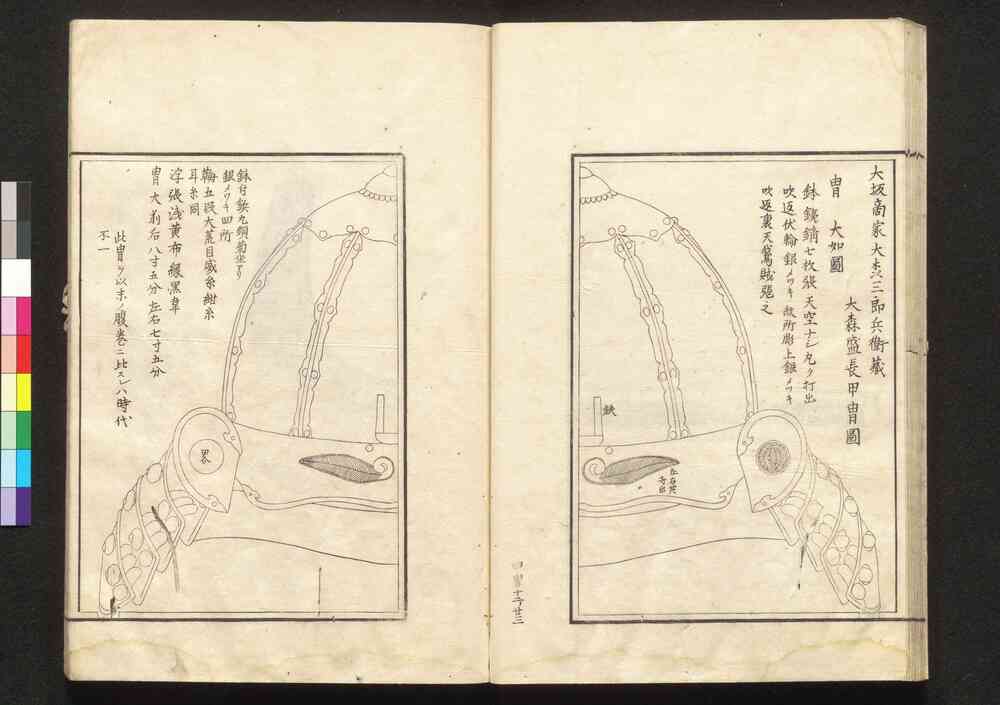 大坂商家大〓三郎兵衛蔵
大森盛長甲冑圖
冑 大如圖
鉢鐵錆七枚張天空ナシ丸ク打出
吹返伏輪銀メツキ 故所彫上銀メツキ
吹返裏天鵞賊張之
鉄
左右共
鉢付鋲丸頭菊坐アリ
銀メツキ四所
鞠五段大荒目威糸紺糸
耳糸同
浮張浅黄布縁黒韋
冑大前后八寸五分左右七寸五分
此冑ヲ以末ノ腹巻ニ比スレハ時代
不一